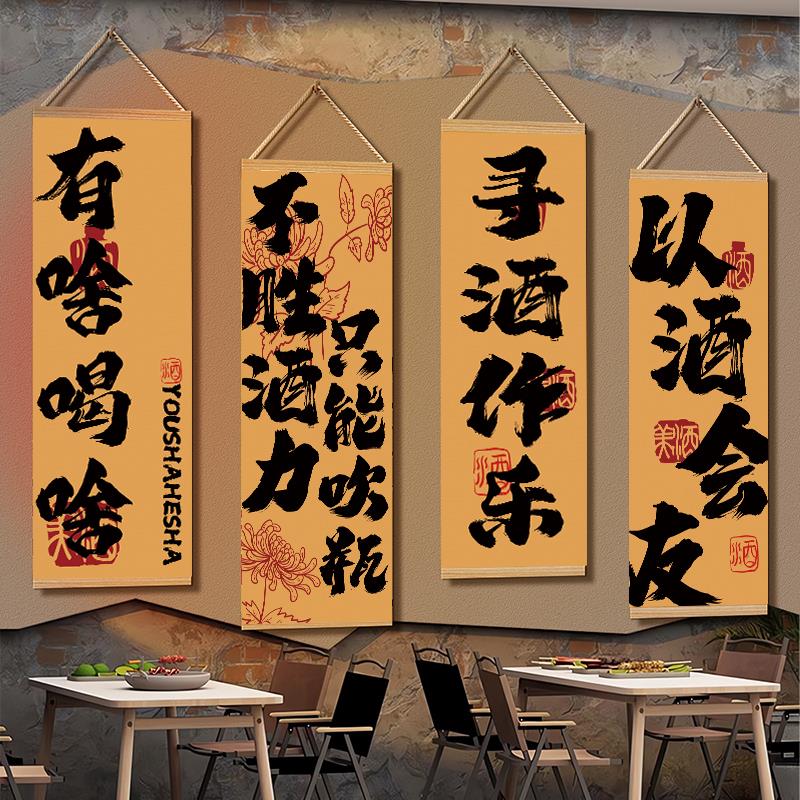 有啥喝啥
酒
YOUSHAHESHA
美酒
不胜酒力
只能吹瓶
寻酒作乐
酒
酒
以酒会友
酒
美酒
酒